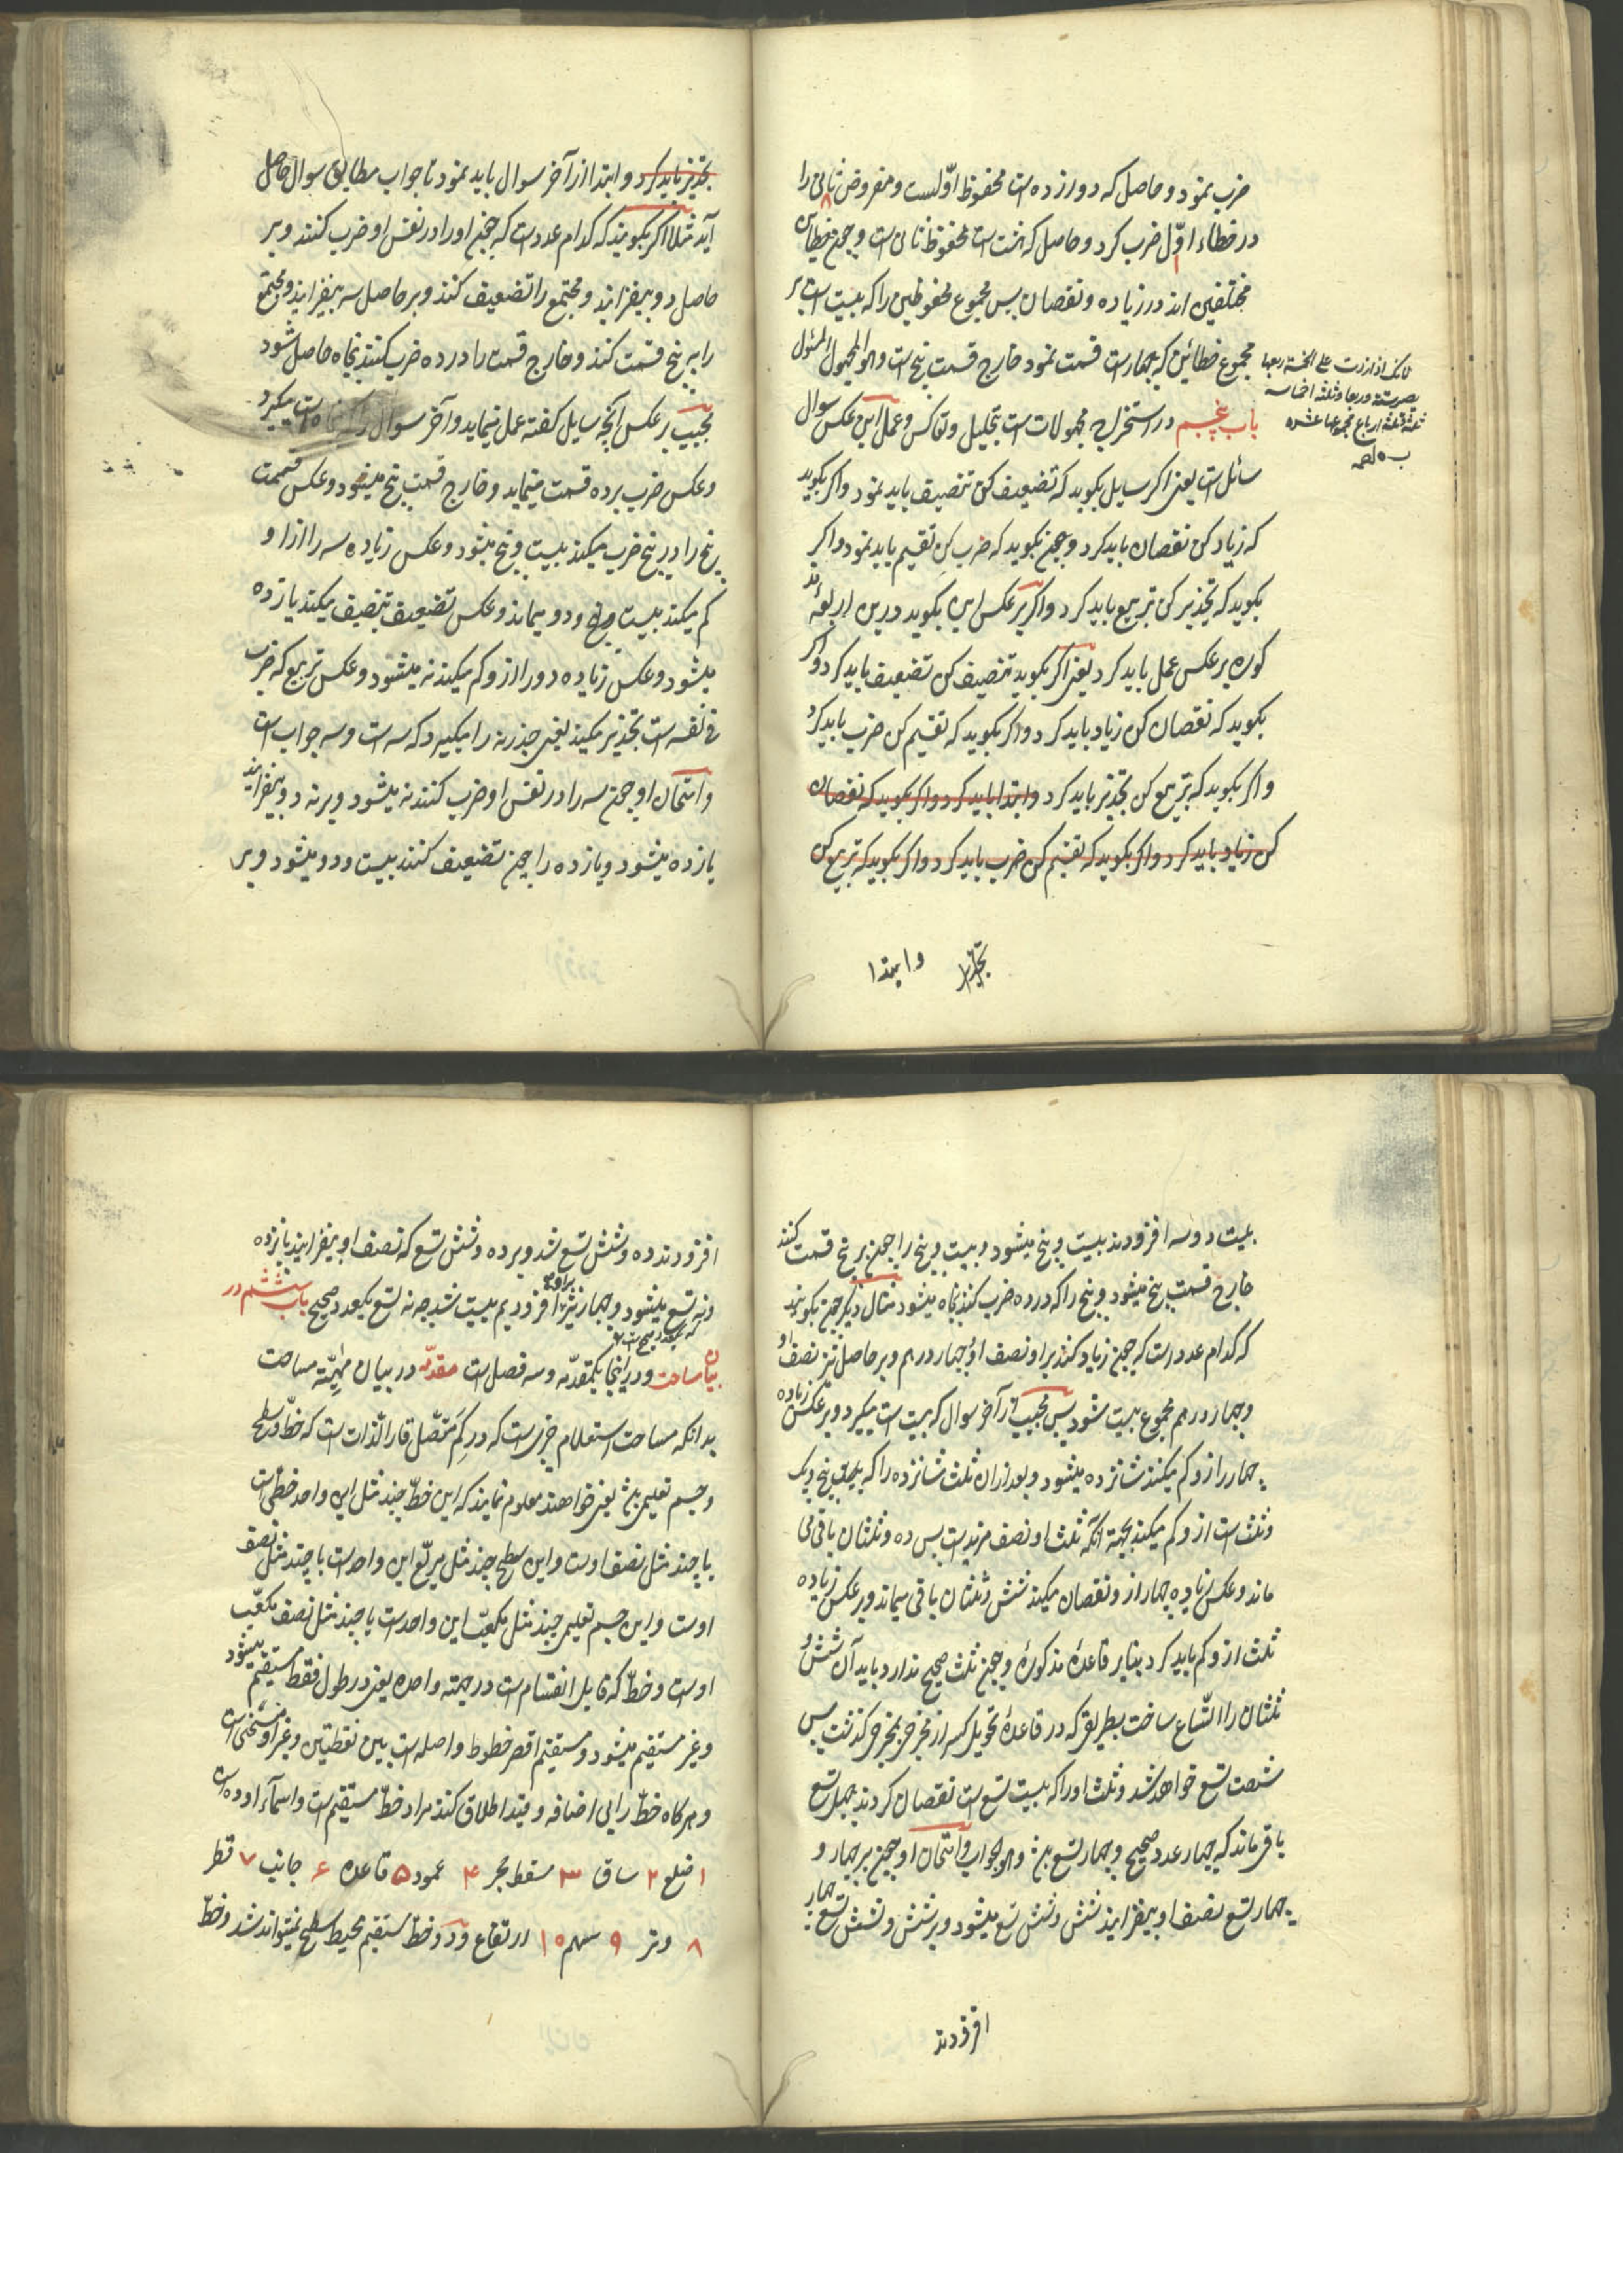 ضرب نمود و حاصل که دوازده است محفوظ اوّلست و مفروض ثانی را
در خطاء اوّل ضرب کرد و حاصل که هشت است محفوظ ثانی است و چون خطایین
مختلفین اند در زیاده و نقصان پس مجموع محفوظین را که بیست است بر
مجموع خطائین که چهار است قسمت نمود خارج قسمت پنج است و هو المجهول المسئول
باب پنجم در استخراج مجهولات است بتحلیل و تعاکس و عمل این عکس سوال
سائل است یعنی اگر سایل بگوید که تضعیف کن تنصیف باید نمود و اگر بگوید
که زیاد کن نقصان باید کرد و چون بگوید که ضرب کن تقسیم باید نمود و اگر
بگوید که تجذیر کن تربیع باید کرد و اگر بر عکس این بگوید درین اربعهٔ مذ
کوره بر عکس عمل باید کرد یعنی اگر بگوید تنصیف کن تضعیف باید کرد و اگر
بگوید که نقصان کن زیاد باید کرد و اگر بگوید که تقسیم کن ضرب باید کرد
و اگر بگوید که تربیع کن تجذیر باید کرد و ابتدا باید کرد و اگر بگوید که نقصان
کن زیاد باید کرد و اگر بگوید که تقسیم کن ضرب باید کرد و اگر بگوید که تربیع کن
و ابتدا
تجذیر باید کرد و ابتدا از آخر سوال باید نمود تا جواب مطابق سوال حاصل
آید مثلا اگر بگویند که کدام عدد است که چون او را در نفس او ضرب کنند و بر
حاصل دو بیفزایند و مجتمع را تضعیف کنند و بر حاصل سه بیفزایند و مجتمع
را به پنج قسمت کنند و خارج قسمت را در ده ضرب کنند پنجاه حاصل شود
مجیب بر عکس آنچه سایل گفته عمل مینماید و آخر سوال را که پنجاه است میگیرد
و عکس ضرب بر ده قسمت مینماید و خارج قسمت پنج میشود و عکس قسمت
پنج را در پنج ضرب میکند بیست و پنج میشود و عکس زیاده سه را از او
کم میکند بیست و دو میماند و عکس تضعیف تنصیف میکند یازده
میشود و عکس زیاده دو را از و کم میکند نه میشود و عکس تربیع که ضرب
فی نفسه است تجذیر میکند یعنی جذر نه را میگیرد که سه است و سه جواب است
و امتحان او چون سه را در نفس او ضرب کنند نه میشود و بر نه دو بیفزایند
یازده میشود و یازده را چون تضعیف کنند بیست و دو میشود و بر
بیست و دو سه افزودند بیست و پنج میشود و بیست و پنج را چون بر پنج قسمت کنند
خارج قسمت پنج میشود و پنج را که در ده ضرب کنند پنجاه میشود مثال دیگر چون بگویند
که کدام عدد است که چون زیاد کنند بر او نصف او و چهار درهم و بر حاصل نیز نصف او
و چهار درهم مجموع بیست شود پس مجیب از آخر سوال که بیست است میگیرد و بر عکس زیاده
چهار را از و کم میکند شانزده میشود و بعد از ان ثلث شانزده را که پنج و یک
و ثلث است از و کم میکند بجهة آنکه ثلث او نصف مزید است پس ده و ثلثان باقی می
ماند و عکس زیاده چهار از و نقصان میکند شش و ثلثان باقی میماند و بر عکس زیاده
ثلث از و کم باید کرد بنابر قاعدهٔ مذکوره و چون ثلث صحیح ندارد باید آن شش و
ثلثان را اتساع ساخت بطریق که در قاعدهٔ تحویل کسر از مخرجی بمخرجی گذشت پس
شصت تسع خواهد شد و ثلث او را که بیست تسع است نقصان کردند چهل تسع
باقی ماند که چهار عدد صحیح و چهار تسع باشد و هو الجواب و امتحان او چون بر چهار و
چهار تسع نصف او بیفزایند شش و شش تسع میشود و بر شش و شش تسع چهار
افزودند
افزودند ده و شش تسع شد و بر ده و شش تسع که نصف او بیفزایند پانزده
و نه تسع میشود و چهار نیز بر او افزودیم بیست شد چه نه تسع یکعدد صحیح باب ششم در
بیان مساحت و در اینجا یکمقدمّه و سه فصل است مقدمّه در بیان مهیّته مساحت
بدانکه مساحت استعلام چیزی است که در کم متّصل قار الذات است که خطّ و سطح
و جسم تعلیمی باشد یعنی خواهند معلوم نمایند که این خطّ چند مثل این واحد خطّی است
یا چند مثل نصف اوست و این سطح چند مثل مربّع این واحد است یا چند مثل نصف
اوست و این جسم تعلیمی چند مثل مکعّب این واحد است یا چند مثل نصف مکعّب
اوست و خطّ که قابل انقسام است در جهته واحده یعنی در طول فقط مستقیم میشود
و غیر مستقیم میشود و مستقیم اقصر خطوط واصله است بین نقطتین و غیر او منحنی است
و هرگاه خطّ را بی اضافه و قید اطلاق کنند مراد خطّ مستقیم است و اسماء او ده است
۱ ضلع ۲ ساق ۳ مسقط حجر ۴ عمود ۵ قاعده ۶ جانب ۷ قطر
۸ وتر ۹ سهم ۱۰ ارتفاع و دو خطّ مستقیم محیط سطح نمیتواند شد و خطّ